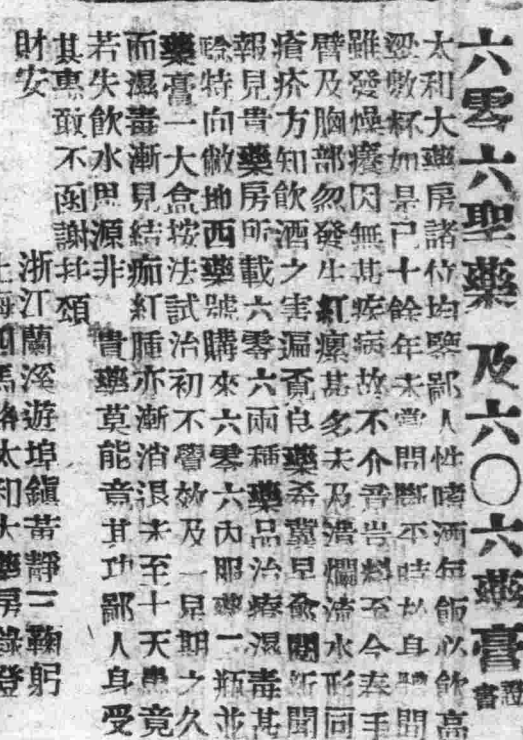 六零六聖藥 及六〇六藥膏 證書
太和大藥房諸位均鑒鄙人性嗜酒每飯必飲高
粱數杯如是已十餘年未嘗間斷不時於身體間
雖發燥癢因無甚疾病故不介意豈料至今春手
臂及胸部忽發生紅瘰甚多未及潰爛流水形同
瘡疥方知飲酒之害遍覓良藥希冀早愈閱新聞
報見貴藥房所載六零六兩種藥品治療濕毒甚
騐特向敝地西藥號購來六零六內服藥一瓶並
藥膏一大盒按法試治初不覺效及一星期之久
而濕毒漸見結痂紅腫亦漸消退未至十天患竟
若失飲水思源非 貴藥莫能竟其功鄙人身受
其惠敢不函謝幷頌
財安
浙江蘭溪遊埠鎮黃靜三鞠躬
上海四馬路太和大藥房錄登